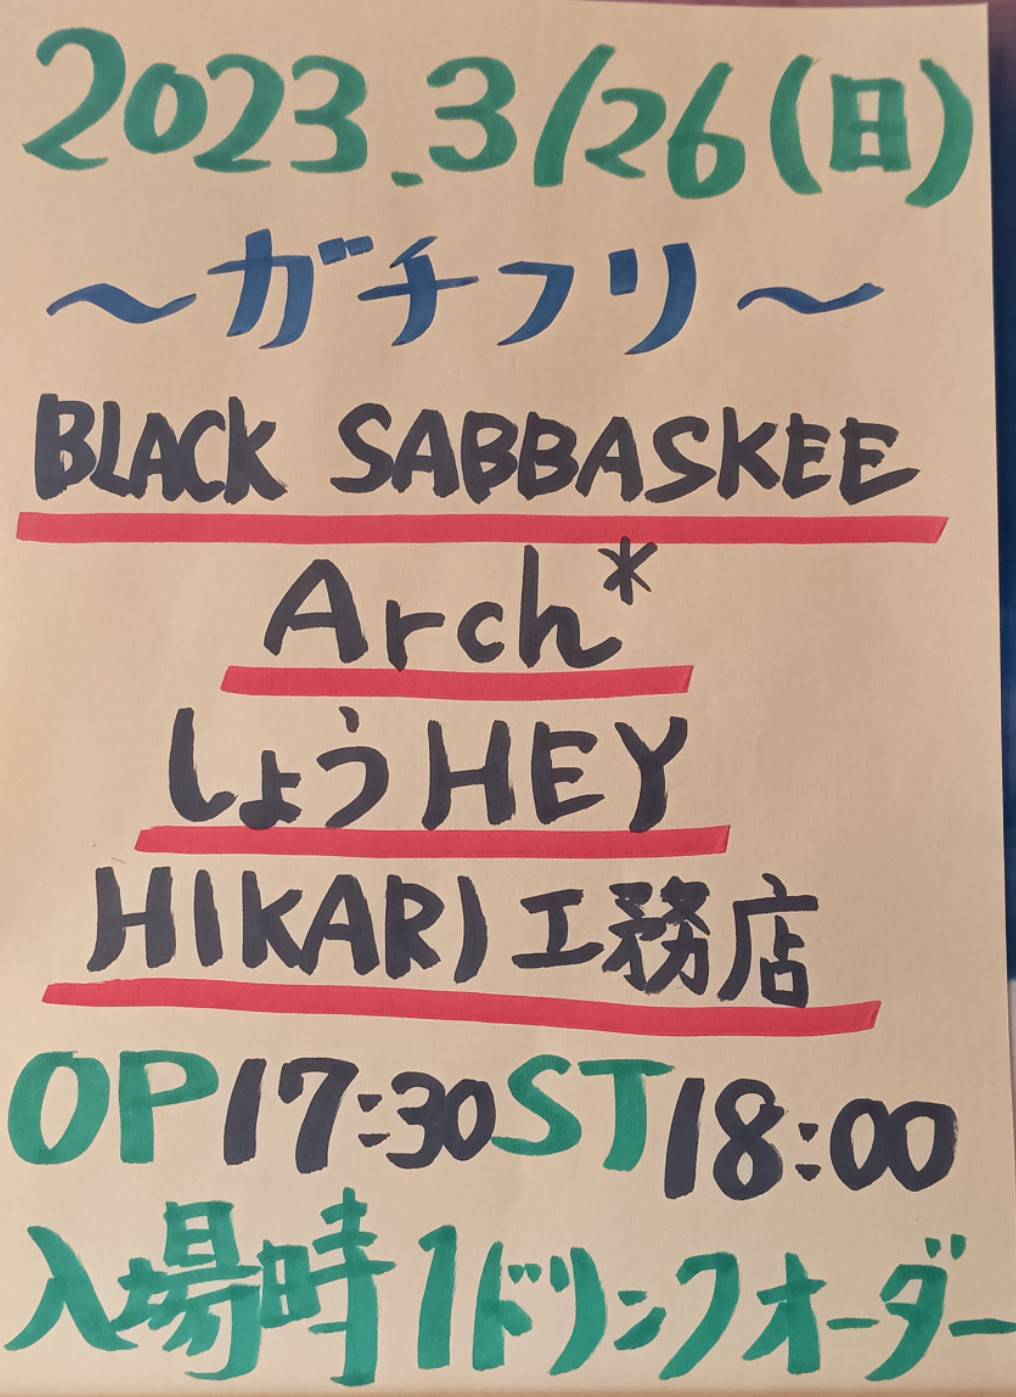 2023.3/26(日)
〜ガチフリ〜
BLACK SABBASKEE
Arch*
しょうHEY
HIKARI工務店
OP17:30ST18:00
入場時1ドリンクオーダー